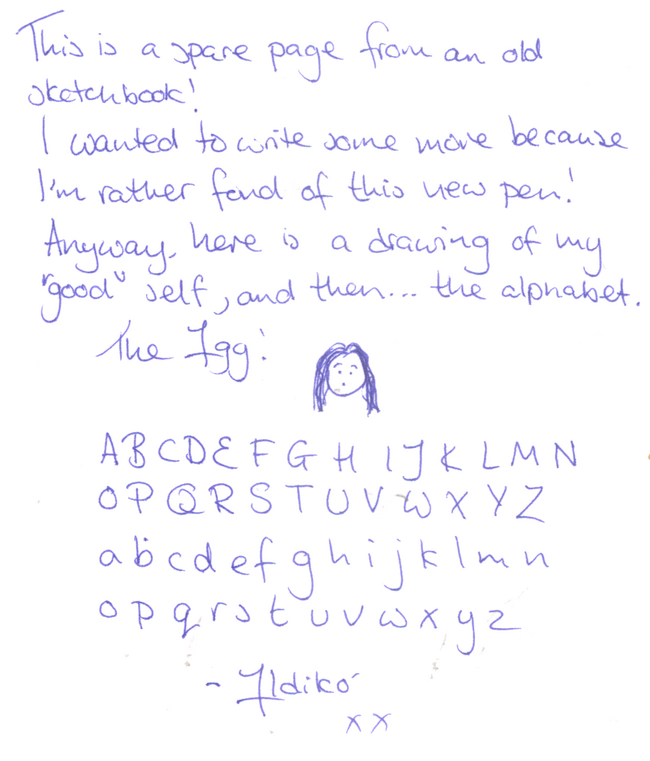 This is a spare page from an old
sketchbook!
I wanted to write some more because
I'm rather fond of this new pen!
Anyway, here is a drawing of my
"good" self, and then... the alphabet.
The Igg:
A B C D E F G H I J K L M N
O P Q R S T U V W X Y Z
a b c d e f g h i j k l m n
o p q r s t u v w x y z
- Ildikó
x x